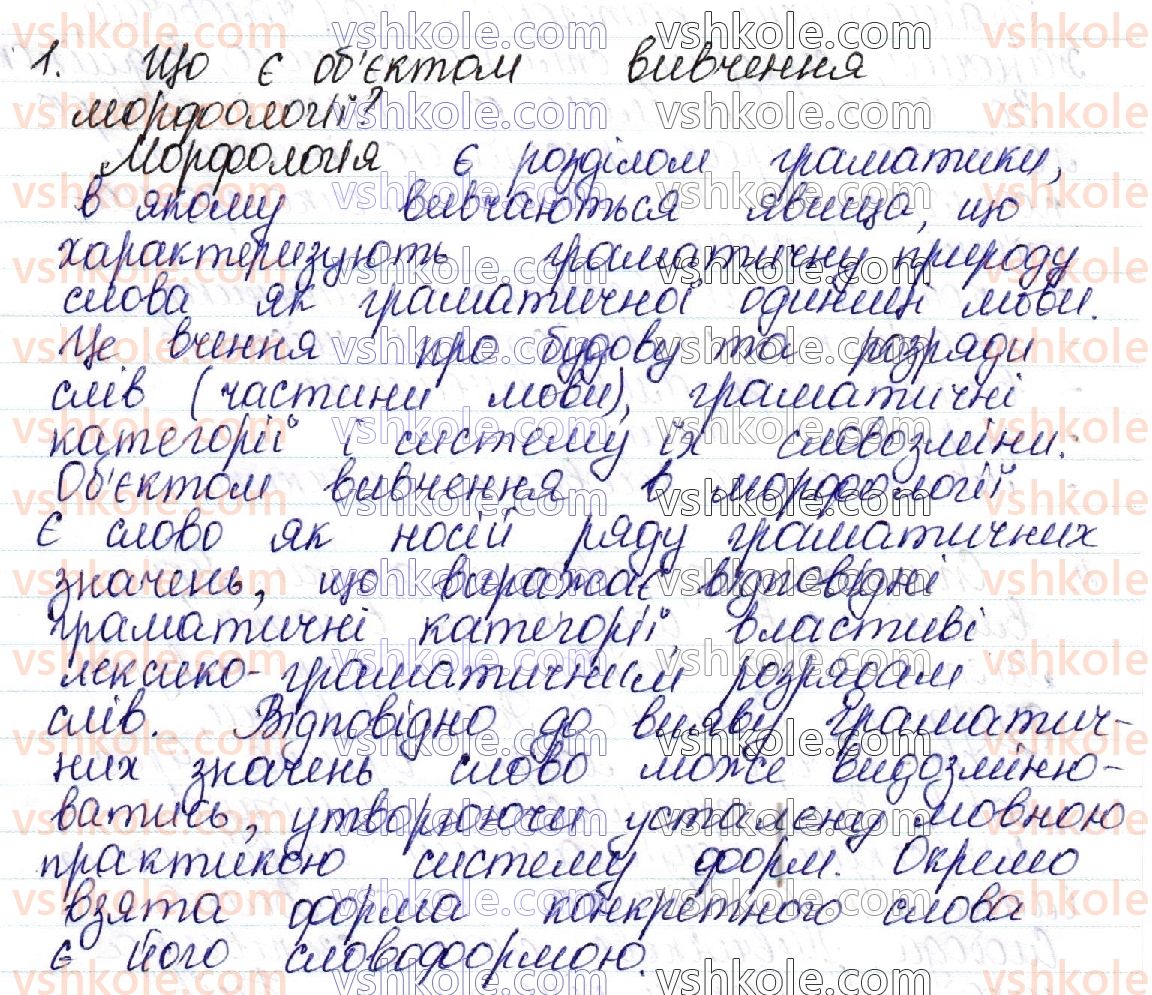 1. Що є об'єктом вивчення
морфології?
Морфологія є розділом граматики,
в якому вивчаються явища, що
характеризують граматичну природу
слова як граматичної одиниці мови.
Це вчення про будову та розряди
слів (частини мови), граматичні
категорії і систему їх словозміни.
Об'єктом вивчення в морфології
є слово як носій ряду граматичних
значень, що виражає відповідні
граматичні категорії, властиві
лексико-граматичним розрядам
слів. Відповідно до вияву граматич-
них значень слово може видозміню-
ватись, утворюючи усталену мовною
практикою систему форм. Окремо
взята форма конкретного слова
є його словоформою.